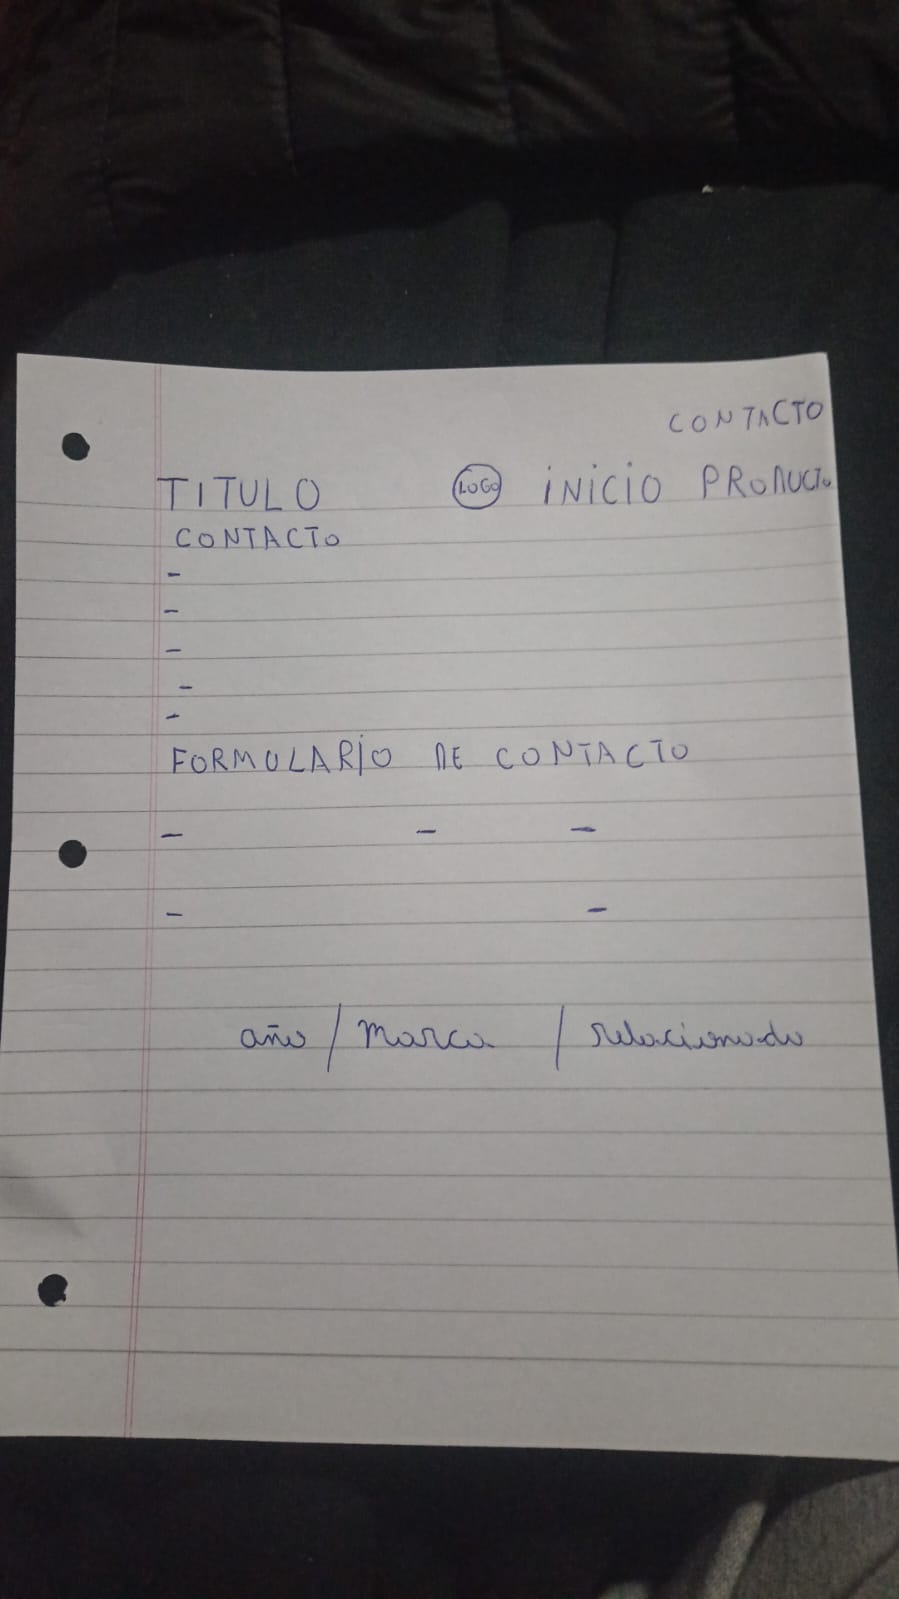 CONTACTO
TITULO LOGO INICIO PRODUCTO
CONTACTO
-
-
-
-
-
FORMULARIO DE CONTACTO
- - -
- -
año / Marca / relacionado